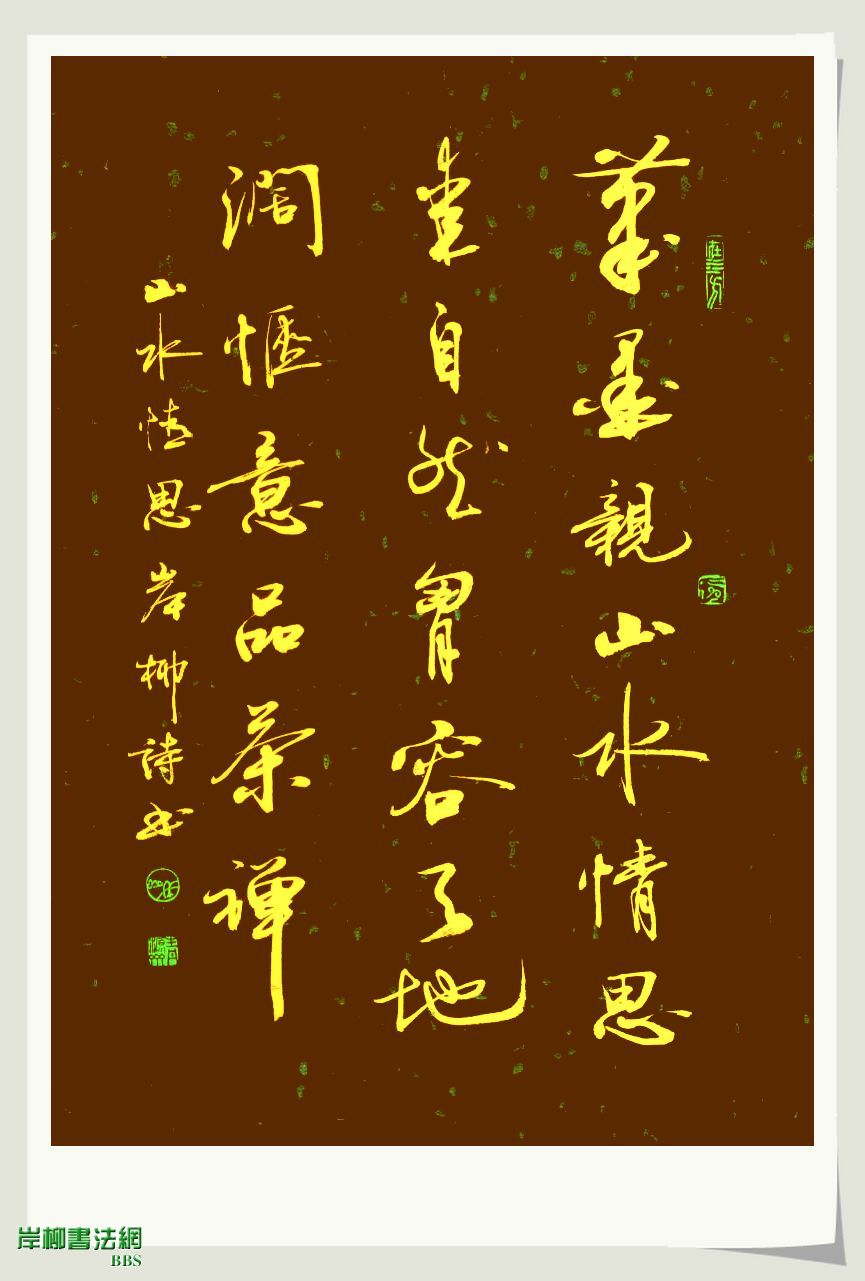 筆墨親山水情思
自然胷容天地
濶愜意品茶禅
山水情思岸柳詩书
岸柳書法網
BBS